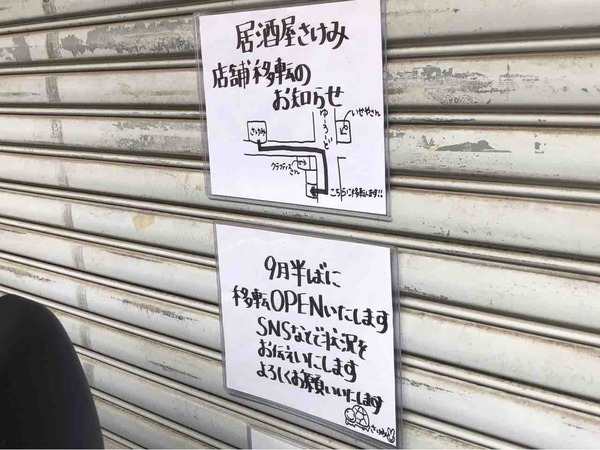 居酒屋さけみ
店舗移転の
お知らせ
さけみ
ゆーろーど
いせやさん
クラフティスさん
こちらに移転します!!
9月半ばに
移転OPENいたします
SNSなどで状況を
お伝えいたします
よろしくお願いいたします
さけみ